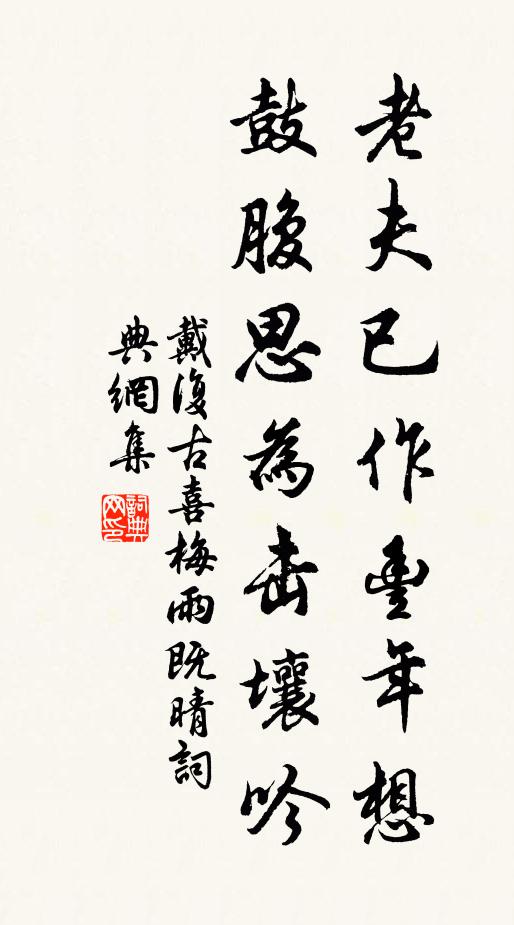 老夫已作豐年想
鼓腹思為击壤吟
戴復古喜梅雨既晴詞
典網集
詞典网印